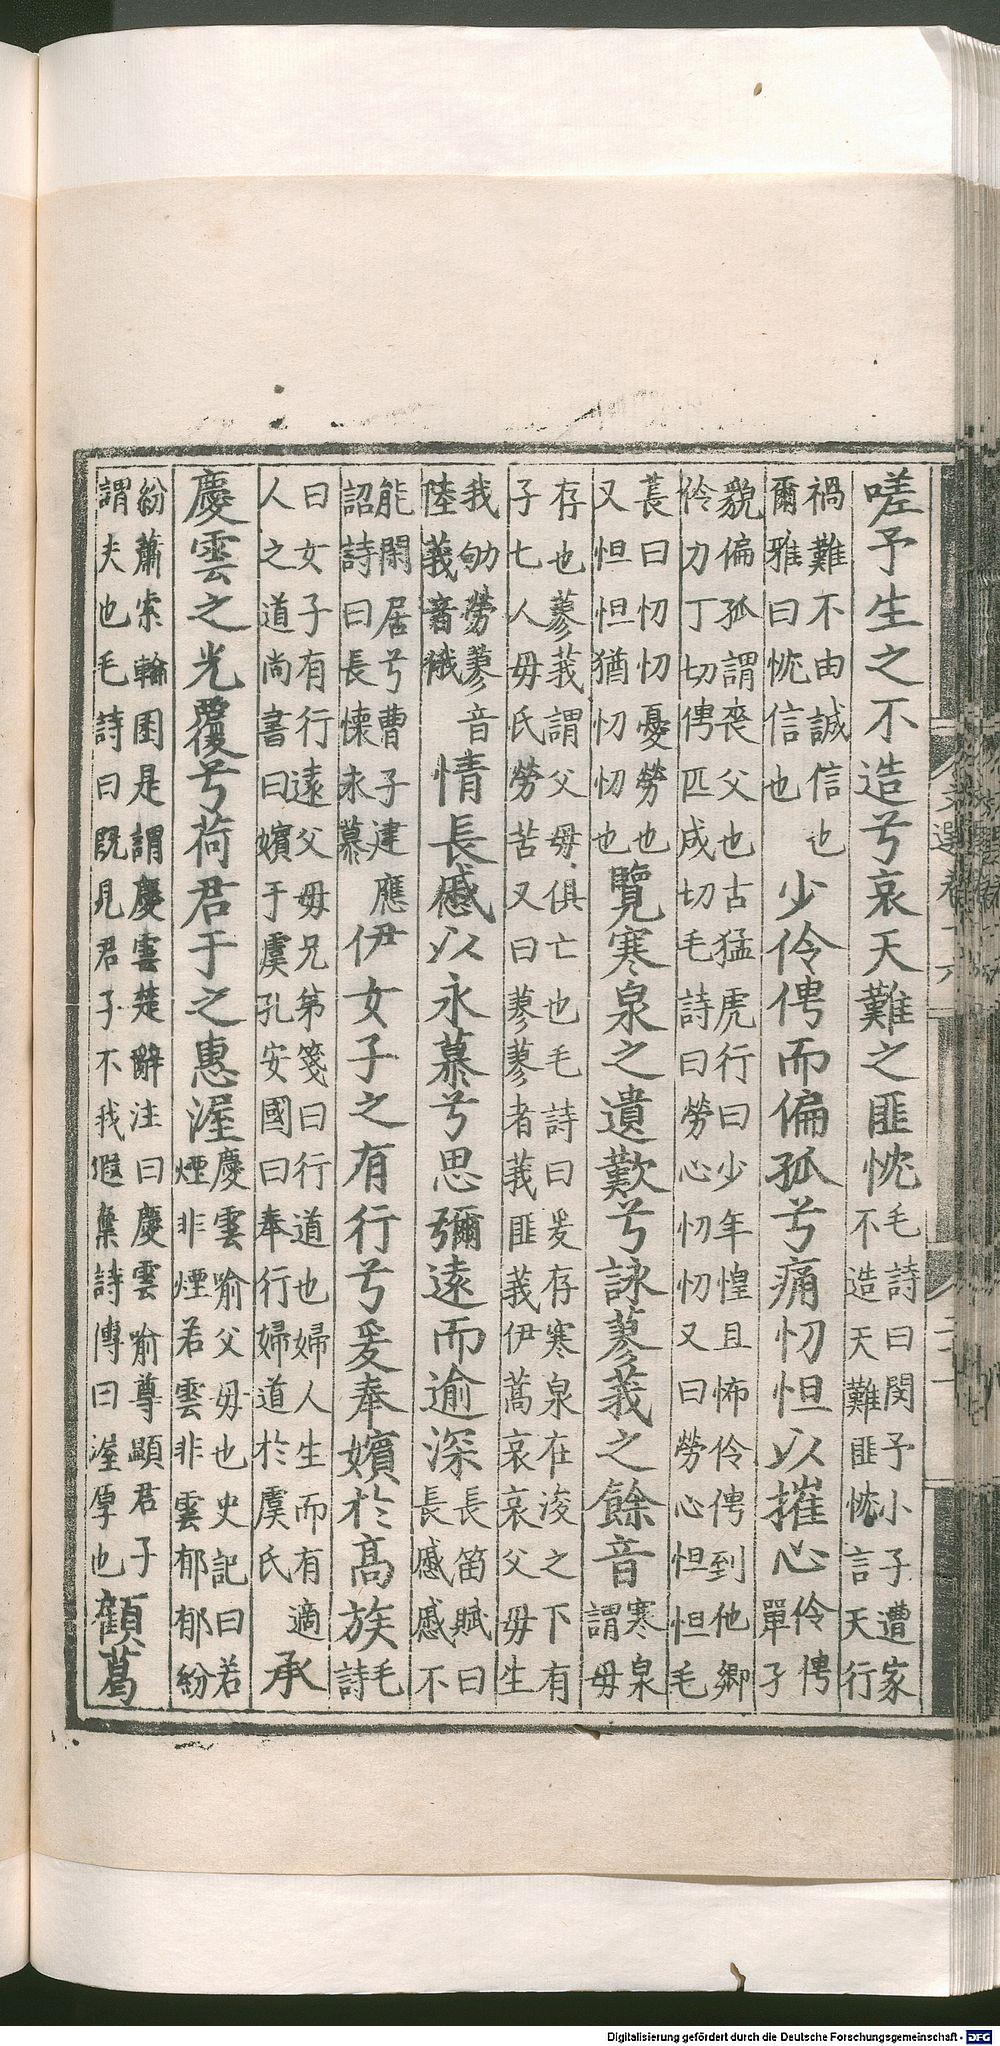 嗟予生之不造兮哀天難之匪忱毛詩曰閔予小子遭家不造天難匪忱言天行
禍難不由誠信也爾雅曰忱信也少伶俜而偏孤兮痛忉怛以摧心伶俜單孑
貌偏孤謂喪父也古猛虎行曰少年惶且怖伶俜到他鄉伶力丁切俜匹成切毛詩曰勞心忉忉又曰勞心怛怛毛
萇曰忉忉憂勞也又怛怛猶忉忉也覽寒泉之遺歎兮詠蓼莪之餘音寒泉謂母
存也蓼莪謂父母俱亡也毛詩曰爰存寒泉在浚之下有子七人母氏勞苦又曰蓼蓼者莪匪莪伊蒿哀哀父母生
我劬勞蓼音陸義音情長慼以永慕兮思彌遠而逾深長笛賦曰長慼慼不
能閑居兮曹子建應詔詩曰長懷永慕伊女子之有行兮爰奉嬪於高族毛詩
曰女子有行遠父母兄弟箋曰行道也婦人生而有適人之道尚書曰嬪于虞孔安國曰奉行婦道於虞氏承
慶雲之光覆兮荷君子之惠渥慶雲喻父母也史記曰若煙非煙若雲非雲郁郁紛
紛蕭索輪囷是謂慶雲楚辭注曰慶雲喻尊顯君子謂夫也毛詩曰既見君子不我遐棄詩傳曰渥厚也顧葛
文選卷十六
Digitalisierung gefördert durch die Deutsche Forschungsgemeinschaft - DFG